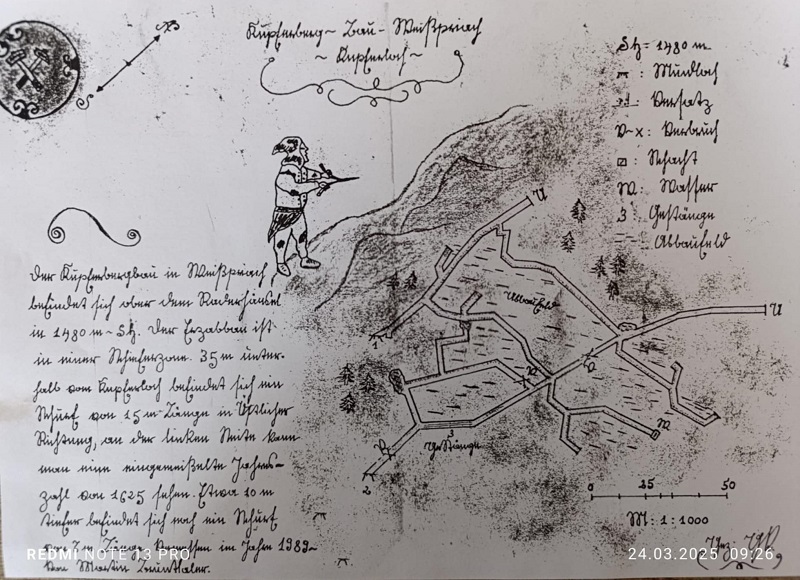 Kupferberg- Bau- Weißpriach
~ Kupferloch ~
N
S
Sh= 1480 m.
: Mundloch
: Versatz
V-x: Verbruch
: Schacht
W: Wasser
3: Gestänge
: Abbaufeld
Der Kupferbergbau in Weißpriach
befindet sich ober dem Raderhäusel
in 1480 m - Sh. Der Erzabbau ist
in einer Schieferzone. 35 m unter-
halb vom Kupferloch befindet sich ein
Schurf von 15 m Länge in Östlicher
Richtung, an der linken Seite kann
man eine eingemeißelte Jahres-
zahl von 1625 sehen. Etwa 10 m
tiefer befindet sich noch ein Schurf
von 7 m Länge. Vermessen im Jahre 1989-
Von Martin
Abbaufeld
1
2
3
Gestänge
V
V
W
0 25 50
M: 1:1000
REDMI NOTE 13 PRO
24.03.2025 09:26